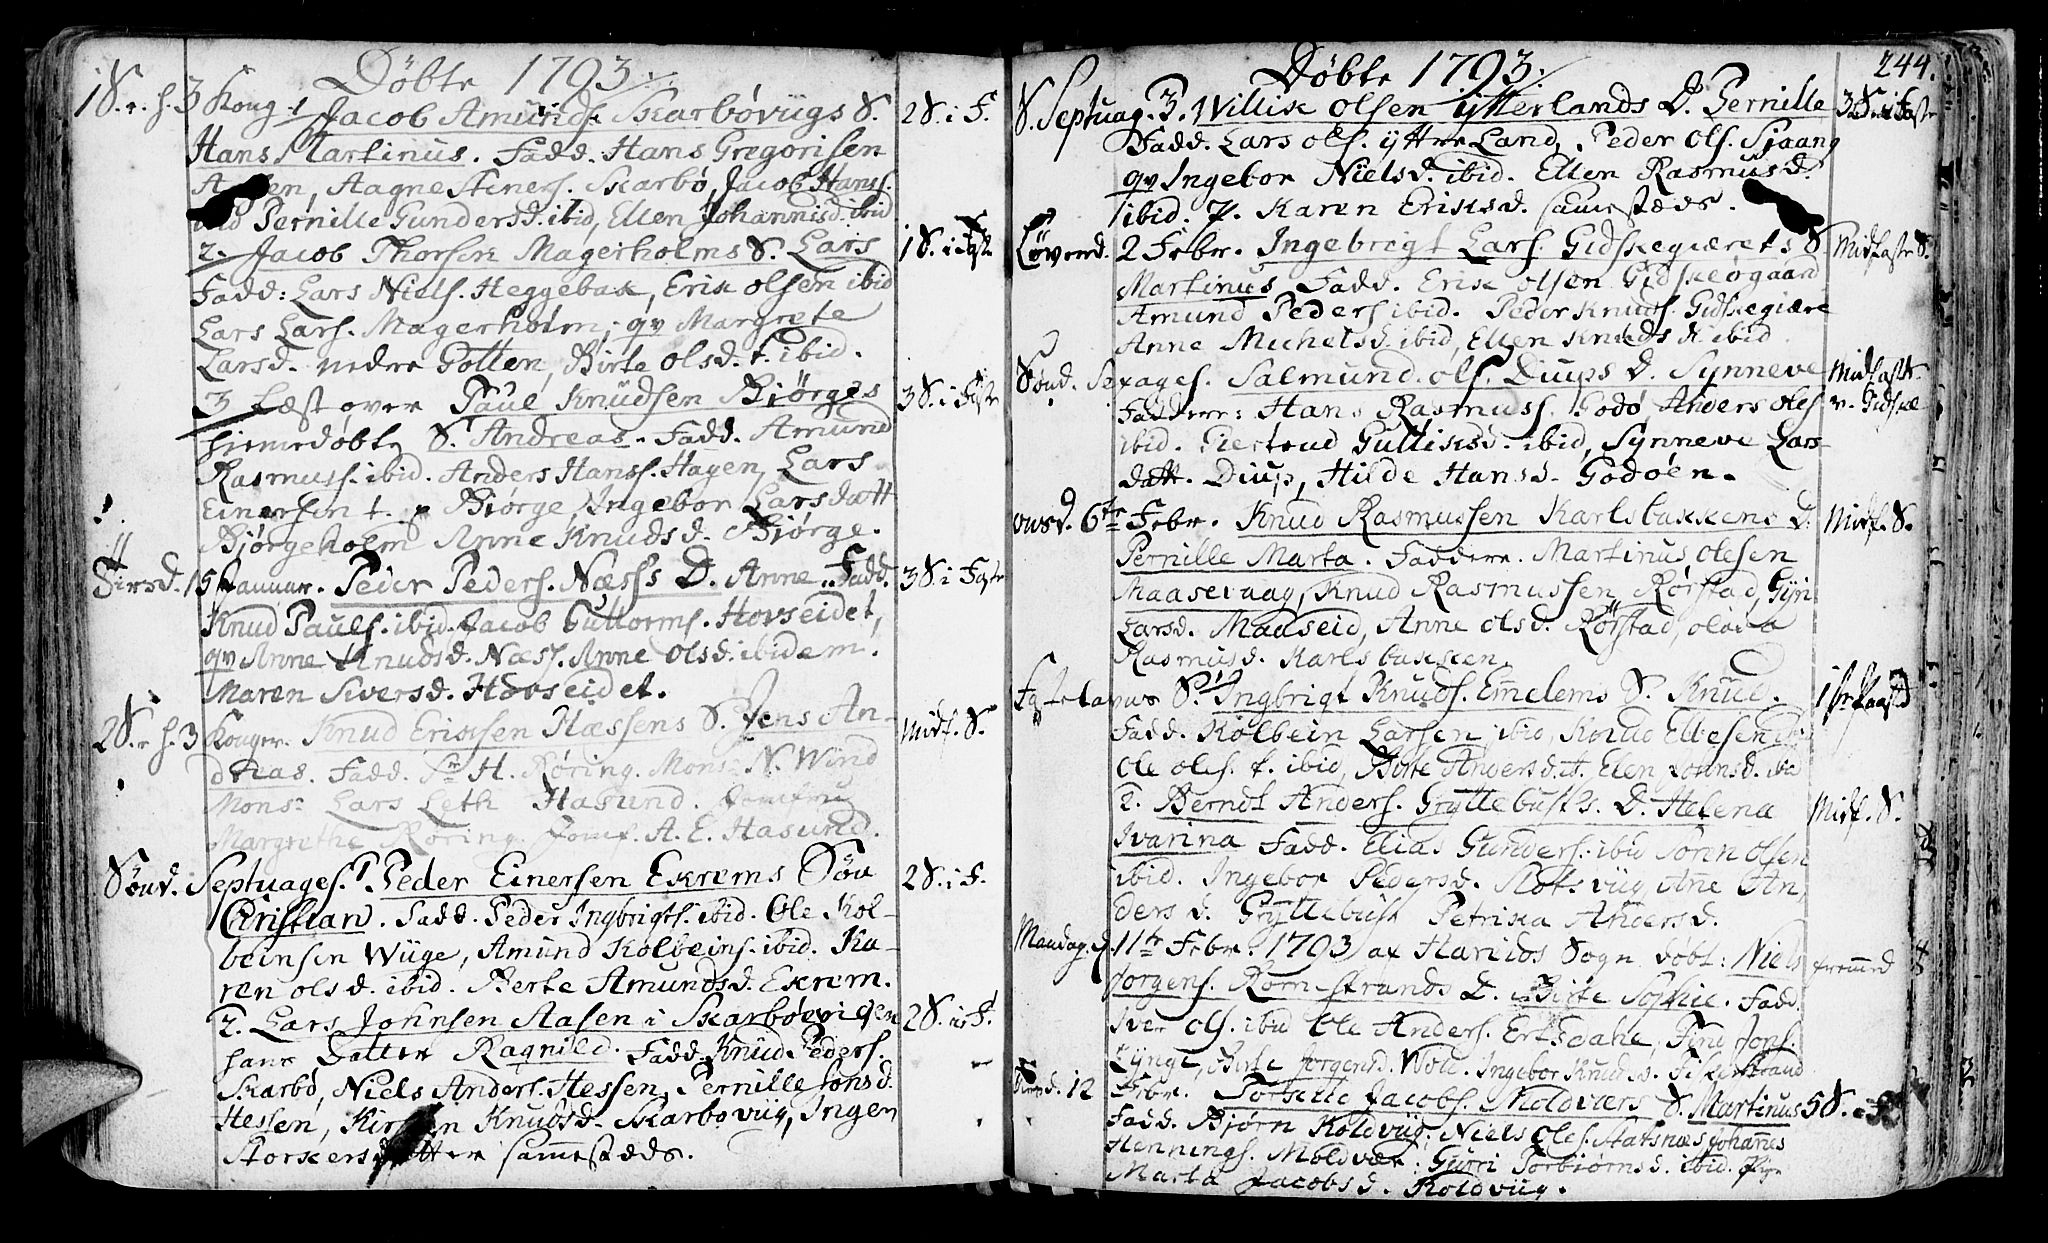 Døbte 1793.
1 S. e. h. 3 Kong. 1 Jacob Amunds. Skarbøvügs S. 2 S. i F.
Hans Martinus. Fadd. Hans Gregorisen
Aagne Steners. Skarbø, Jacob Hanss.
Pernille Gundersd. ibid, Ellen Johannisd. ibid
2. Jacob Thorsen Magerholms S. Lars 1 S. i Fast.
Fadd: Lars Niels. Heggebak, Erik olsen ibid
Lars Lars. Magerholm, qv Margrete
Larsd. nedre Gotten, Birte olsd. t. ibid.
3 Læst over Paul Knudsen Biørges 3 S. i Faste
hiemedøbte S. Andreas. Fadd. Amund
Rasmuss. ibid. Anders Hanss. Hagen, Lars
Einersen t. p Biørge Ingebor Larsdatt
Biørgeholm Anne Knudsd. Biørge.
Tirsd. 15 Januar. Peder Peders. Næss D. Anne. Fadd. 3 S. i Faste
Knud Pauls. ibid. Jacob Guttorms. Hovseidet,
qv Anne Knudsd. Næss. Anne olsd. ibidem.
Maren Siversd. Hovseidet.
2 S. e h. 3 Konger. Knud Eriksen Hæssens S. Jens An- Midf. S.
dreas. Fadd. Sr H. Røring. Mons. N. Wind
Mons: Lars Leth Hasund. Jomfru
Margrethe Røring Jomf. A. E. Hasund.
Sønd. Septuages. 1 Peder Einersen Ekrems Søn 2 S. i F.
Christian. Fadd. Peder Ingbrigts. ibid. Ole Kol-
beinsen Wiige, Amund Kolbeins. ibid. Ka-
ren olsd. ibid. Berte Amundsd. Ekrem.
2. Lars Johnsen Aasen i Skarbøevigen 2 S. i F.
hans Datter Ragnild. Fadd. Knud Peders.
Skarbø, Niels Anders. Hessen, Pernille Jonsd.
Hessen, Kirsten Knudsd. Skarbøvüg, Ingen
Storkersdatter sammestæds.
Døbte 1793. 244.
S. Septuag. 3. Willik Olsen ytterlands D. Pernille 3 S. i Faste
Fadd. Lars ols. yttre Land, Peder Ols. Sjaang
qv Ingebor Nielsd. ibid. Ellen Rasmusd.
ibid. p. Karen Eriksd. sammestæds.
Løverd. 2 Febr. Ingebrigt Lars. Gidskegiærets S. Midfaste S.
Martinus Fadd. Erik olsen Gidskeøgaard
Amund Peders ibid. Peder Knuds. Gidskegiære
Anne Michelsd. ibid, Ellen Knudsd. ibid
Sønd. Sexages. Salmund ols. Diups D. Synneve Midfaste
Faddere: Hans Rasmuss. Godø, Anders oles v. Gidske
ibid. Giertrud Gulliksd. ibid, Synneve Lars
datt. Diup, Hilde Hansd. Godøen.
onsd. 6te Febr. Knud Rasmussen Karlsbakkens D. Midf. S.
Pernille Marta. Faddere. Martinus olesen
Maasevaag, Knud Rasmussen Rørstad, Gjn
Larsd. Maaseid, Anne olsd. Rørstad, olava
Rasmusd. Karlsbakken.
Fastelavns S. 1 Ingbrigt Knuds. Emelems S. Knud. 1ste Paaskd
Fadd. Kolbein Larsen ibid, Knud Ellesen ibid
Ole oles. t. ibid, Birte Andersd. t. Elen Johnsd. ibid
2. Berndt Anders. Gryttebusts. D. Helena Midf. S.
Ivarina Fadd. Elias Gunders. ibid Søren olsen
ibid. Ingebor Pedersd. Rotsvüg, Ane An,
dersd. Gryttebust Petrika Andersd.
Mandag. d. 11te Febr. 1793 af Hariids Sogn døbt: Niels fremmed
Jørgens. Rørnstrands D. Birte Sophie. Fadd.
Iver Ols. ibid Ole Anders. Erksdahl, Find Jons.
Lynge, Birte Jørgensd. Wold. Ingebor Knudsd. Fiskerstrand
Tirsd. 12 Febr. Torkild Jacobs. Moldværs S. Martinus 5 S. i F.
Fadd. Biørn Koldvüg, Niels Oles. Statsnæs Johannes
Hennings. Moldvær. Gurri Torbiørnsd. ibid. Pige
Marta Jacobsd. Koldvüg.